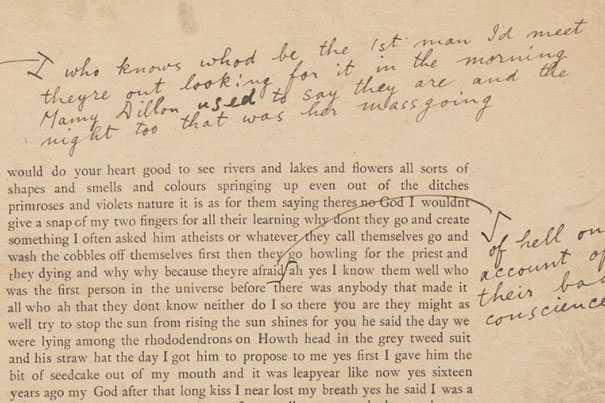 who knows whod be the 1st man I'd meet
theyre out looking for it in the morning
Mamy Dillon used to say they are and the
night too that was her massgoing
would do your heart good to see rivers and lakes and flowers all sorts of
shapes and smells and colours springing up even out of the ditches
primroses and violets nature it is as for them saying theres no God I wouldnt
give a snap of my two fingers for all their learning why dont they go and create
something I often asked him atheists or whatever they call themselves go and
wash the cobbles off themselves first then they go howling for the priest and
they dying and why why because theyre afraid ah yes I know them well who
was the first person in the universe before there was anybody that made it
all who ah that they dont know neither do I so there you are they might as
well try to stop the sun from rising the sun shines for you he said the day we
were lying among the rhododendrons on Howth head in the grey tweed suit
and his straw hat the day I got him to propose to me yes first I gave him the
bit of seedcake out of my mouth and it was leapyear like now yes sixteen
years ago my God after that long kiss I near lost my breath yes he said I was a
of hell on
account of
their bad
conscience